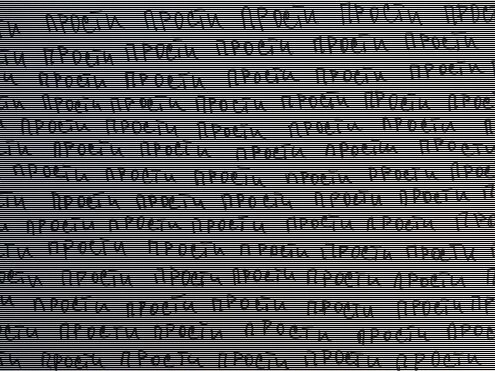 ПРОСТИ ПРОСТИ ПРОСТИ ПРОСТИ
ПРОСТИ ПРОСТИ ПРОСТИ ПРОСТИ ПРОСТИ
ПРОСТИ ПРОСТИ ПРОСТИ ПРОСТИ ПРОСТИ
ПРОСТИ ПРОСТИ ПРОСТИ ПРОСТИ ПРОСТИ
ПРОСТИ ПРОСТИ ПРОСТИ ПРОСТИ ПРОСТИ
ПРОСТИ ПРОСТИ ПРОСТИ ПРОСТИ ПРОСТИ
ПРОСТИ ПРОСТИ ПРОСТИ ПРОСТИ ПРОСТИ
ПРОСТИ ПРОСТИ ПРОСТИ ПРОСТИ ПРОСТИ
ПРОСТИ ПРОСТИ ПРОСТИ ПРОСТИ ПРОСТИ
ПРОСТИ ПРОСТИ ПРОСТИ ПРОСТИ ПРОСТИ
ПРОСТИ ПРОСТИ ПРОСТИ ПРОСТИ ПРОСТИ
ПРОСТИ ПРОСТИ ПРОСТИ ПРОСТИ ПРОСТИ
ПРОСТИ ПРОСТИ ПРОСТИ ПРОСТИ
ПРОСТИ ПРОСТИ ПРОСТИ ПРОСТИ ПРОСТИ